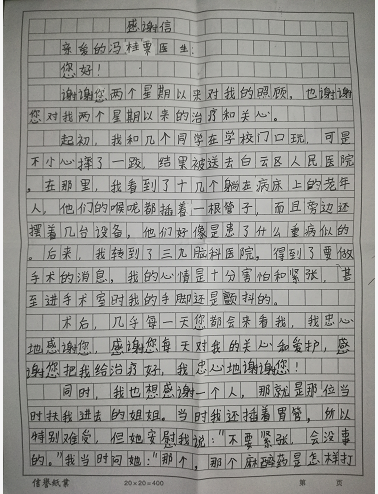 感谢信
亲爱的冯桂栗医生:
您好!
谢谢您两个星期以来对我的照顾,也谢谢
您对我两个星期以来的治疗和关心。
起初,我和几个同学在学校门口玩,可是
不小心摔了一跤,结果被送去白云区人民医院
。在那里,我看到了十几个躺在病床上的老年
人,他们的喉咙都插着一根管子,而且旁边还
摆着几台设备,他们好像是患了什么重病似的
。后来,我转到了三九脑科医院,得到了要做
手术的消息,我的心情是十分害怕和紧张,甚
至进手术室时我的手脚还是颤抖的。
术后,几乎每一天您都会来看我,我忠心
地感谢您,感谢您每天对我的关心和爱护,感
谢您把我给治疗好,我忠心地谢谢您!
同时,我也想感谢一个人,那就是那位当
时扶我进去的姐姐。当时我还插着胃管,所以
特别难受,但她安慰我说:"不要紧张,会没事
的。"我当时问她:"那个,那个麻醉药是怎样打
信誉纸业
20×20=400
第 页